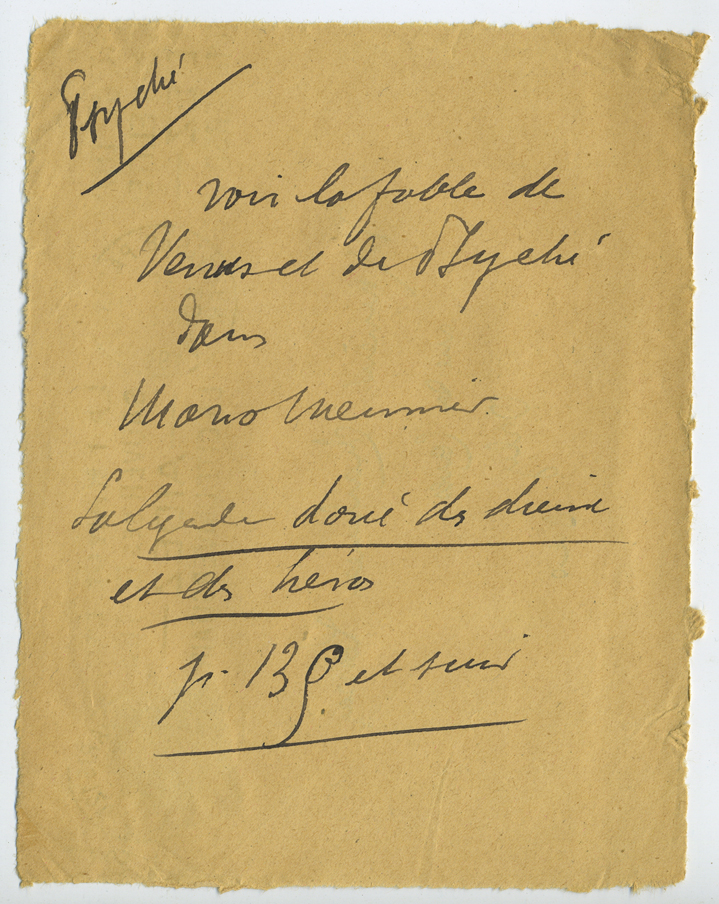 Psyché
voir la fable de
Venus et de Psyché
dans
Mario Meunier
La légende dorée des dieux
et des héros
p. 139 et suiv